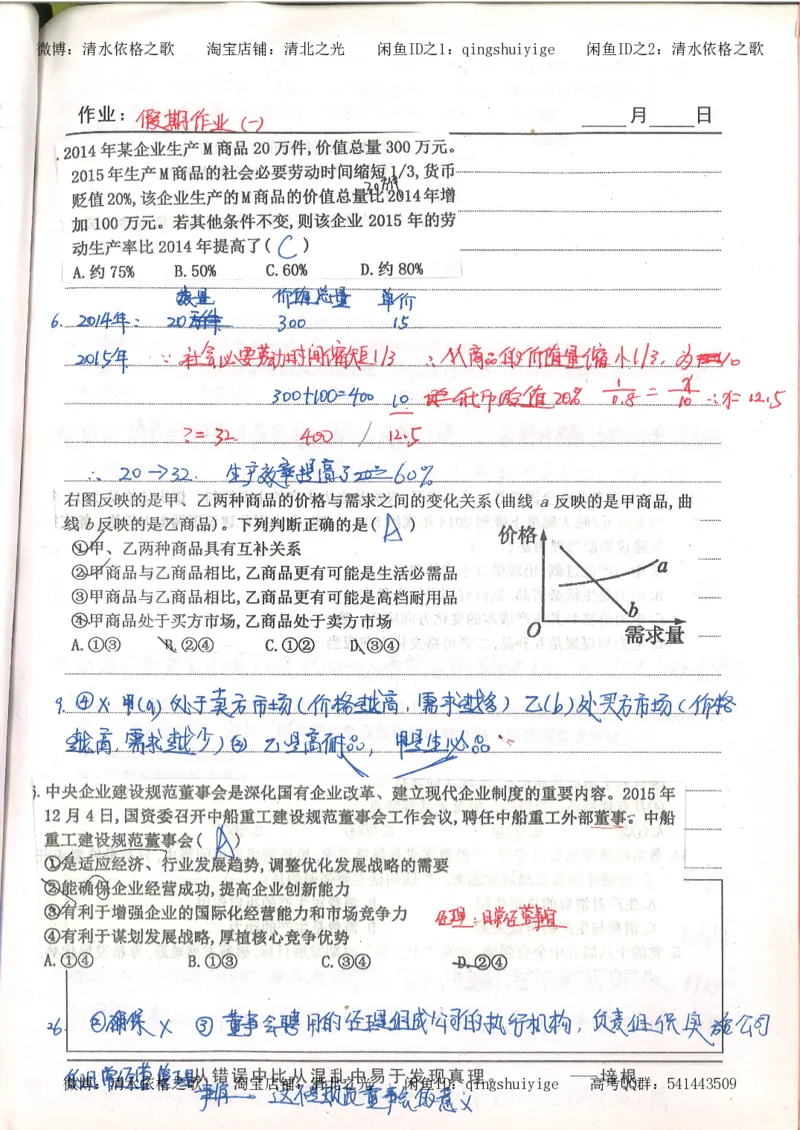 微博：清水依格之歌 淘宝店铺：清北之光 闲鱼ID之1：qingshuiyige 闲鱼ID之2：清水依格之歌
作业：假期作业(一) 月 日
2014年某企业生产M商品20万件,价值总量300万元。
2015年生产M商品的社会必要劳动时间缩短1/3,货币
贬值20%,该企业生产的M商品的价值总量比2014年增
加100万元。若其他条件不变,则该企业2015年的劳
动生产率比2014年提高了( C )
A.约75% B.50% C.60% D.约80%
数量 价值总量 单价
6. 2014年: 20万件 300 15
2015年 ∵社会必要劳动时间缩短1/3 ∴M商品的价值量缩小1/3,为10
300+100=400 10 货币贬值20% 1/0.8 = x/10 ∴x=12.5
?=32 400 / 12.5
∴ 20→32. 生产效率提高了 60%
右图反映的是甲、乙两种商品的价格与需求之间的变化关系(曲线a反映的是甲商品,曲
线b反映的是乙商品)。下列判断正确的是( A )
①甲、乙两种商品具有互补关系
②甲商品与乙商品相比,乙商品更有可能是生活必需品
③甲商品与乙商品相比,乙商品更有可能是高档耐用品
④甲商品处于买方市场,乙商品处于卖方市场
A.①③ B.②④ C.①② D.③④
价格
a
b
O
需求量
9. ④X 甲(a)处于卖方市场(价格越高,需求越多) 乙(b)处买方市场(价格
越高,需求越少) 乙是高耐品, 甲是生必品
6.中央企业建设规范董事会是深化国有企业改革、建立现代企业制度的重要内容。2015年
12月4日,国资委召开中船重工建设规范董事会工作会议,聘任中船重工外部董事。中船
重工建设规范董事会( A
①是适应经济、行业发展趋势,调整优化发展战略的需要
②能确保企业经营成功,提高企业创新能力
③有利于增强企业的国际化经营能力和市场竞争力
④有利于谋划发展战略,厚植核心竞争优势
A.①④ B.①③ C.③④ D.②④
经理:日常经营事宜
26. ②确保X ③董事会聘用的经理组成公司的执行机构,负责组织实施公司
的日常经营管理
从错误中比从混乱中易于发现真理。 ——培根
微博：清水依格之歌 淘宝店铺：清北之光 闲鱼ID：qingshuiyige 高考QQ群：541443509